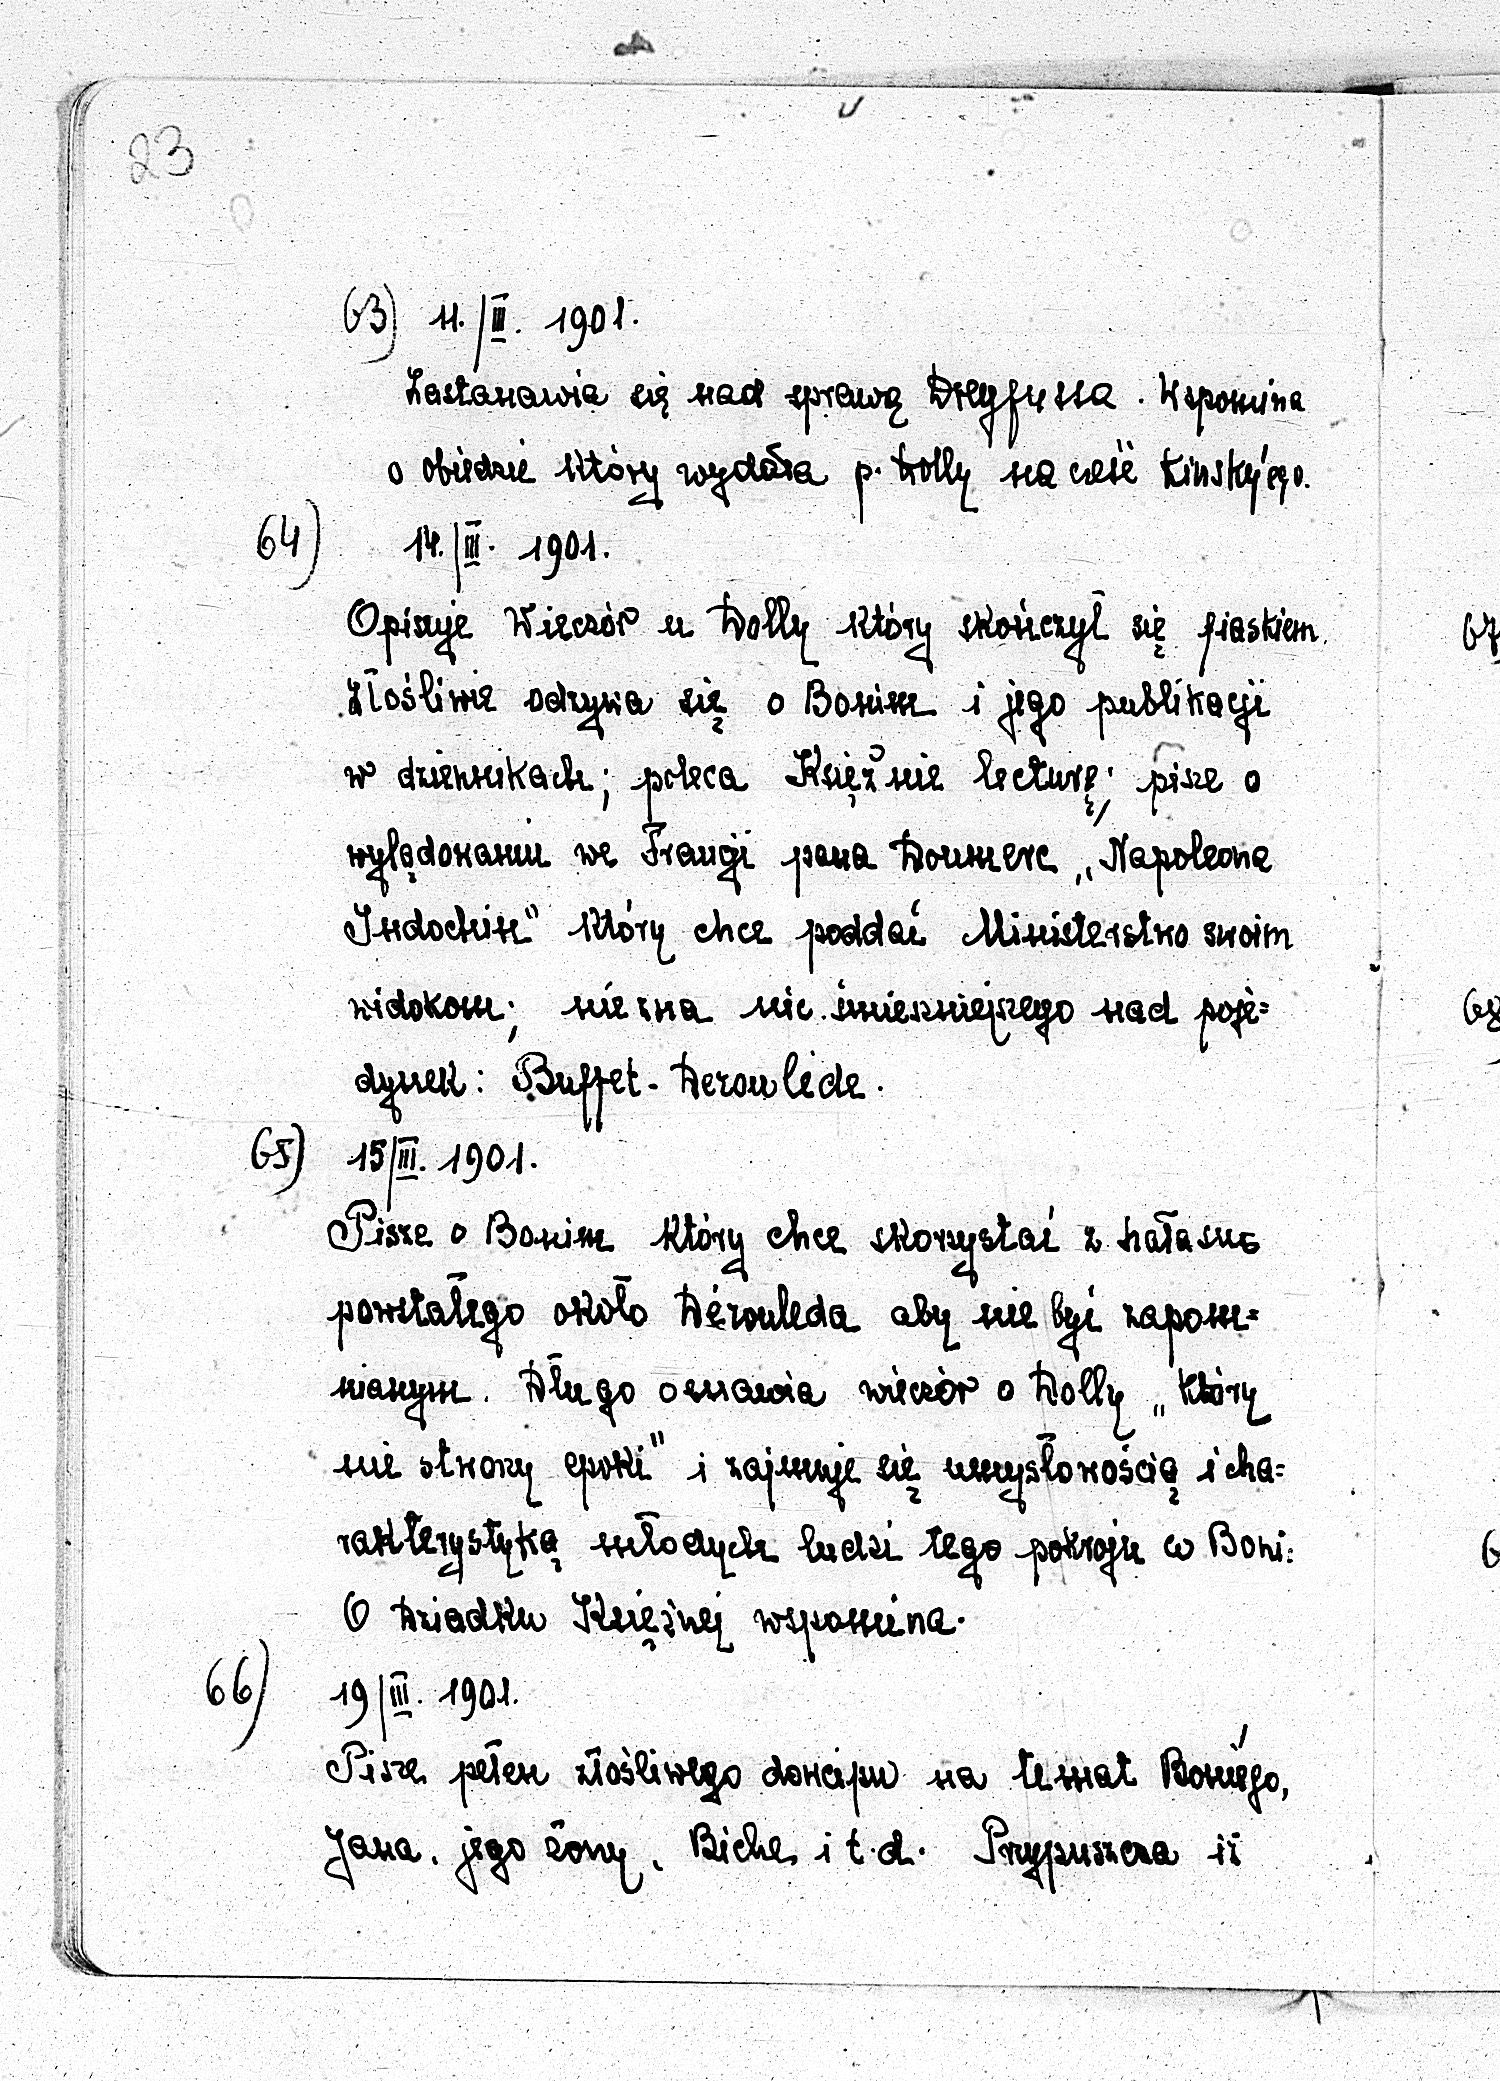 23
63) 11./III. 1901.
Zastanawia się nad sprawą Dreyfussa. Wspomina
o obiedzie który wydała p. Dolly na cześć Kinsky'ego.
64) 14./III. 1901.
Opisuje Wieczór u Dolly który skończył się fiaskiem.
Złośliwie odzywa się o Bonim i jego publikacji
w dziennikach; poleca Księżnie lecturę; pisze o
wylądowaniu we Francji pana Doumerc „Napoleona
Indochin" który chce poddać Ministerstwo swoim
widokom; nie zna nic śmieszniejszego nad poje=
dynek: Buffet-Deroulède.
65) 15/III. 1901.
Pisze o Bonim który chce skorzystać z hałasu
powstałego około Dérouleda aby nie być zapom=
nianym. Długo omawia wieczór o Dolly „który
nie stworzy epoki" i zajmuje się umysłowością i cha=
rakterystyką młodych ludzi tego pokroju co Boni:
O Dziadku Księżnej wspomina.
66) 19/III. 1901.
Pisze pełen złośliwego dowcipu na temat Boni'ego,
Jana, jego żony, Biche i t.d. Przypuszcza iż
67
68